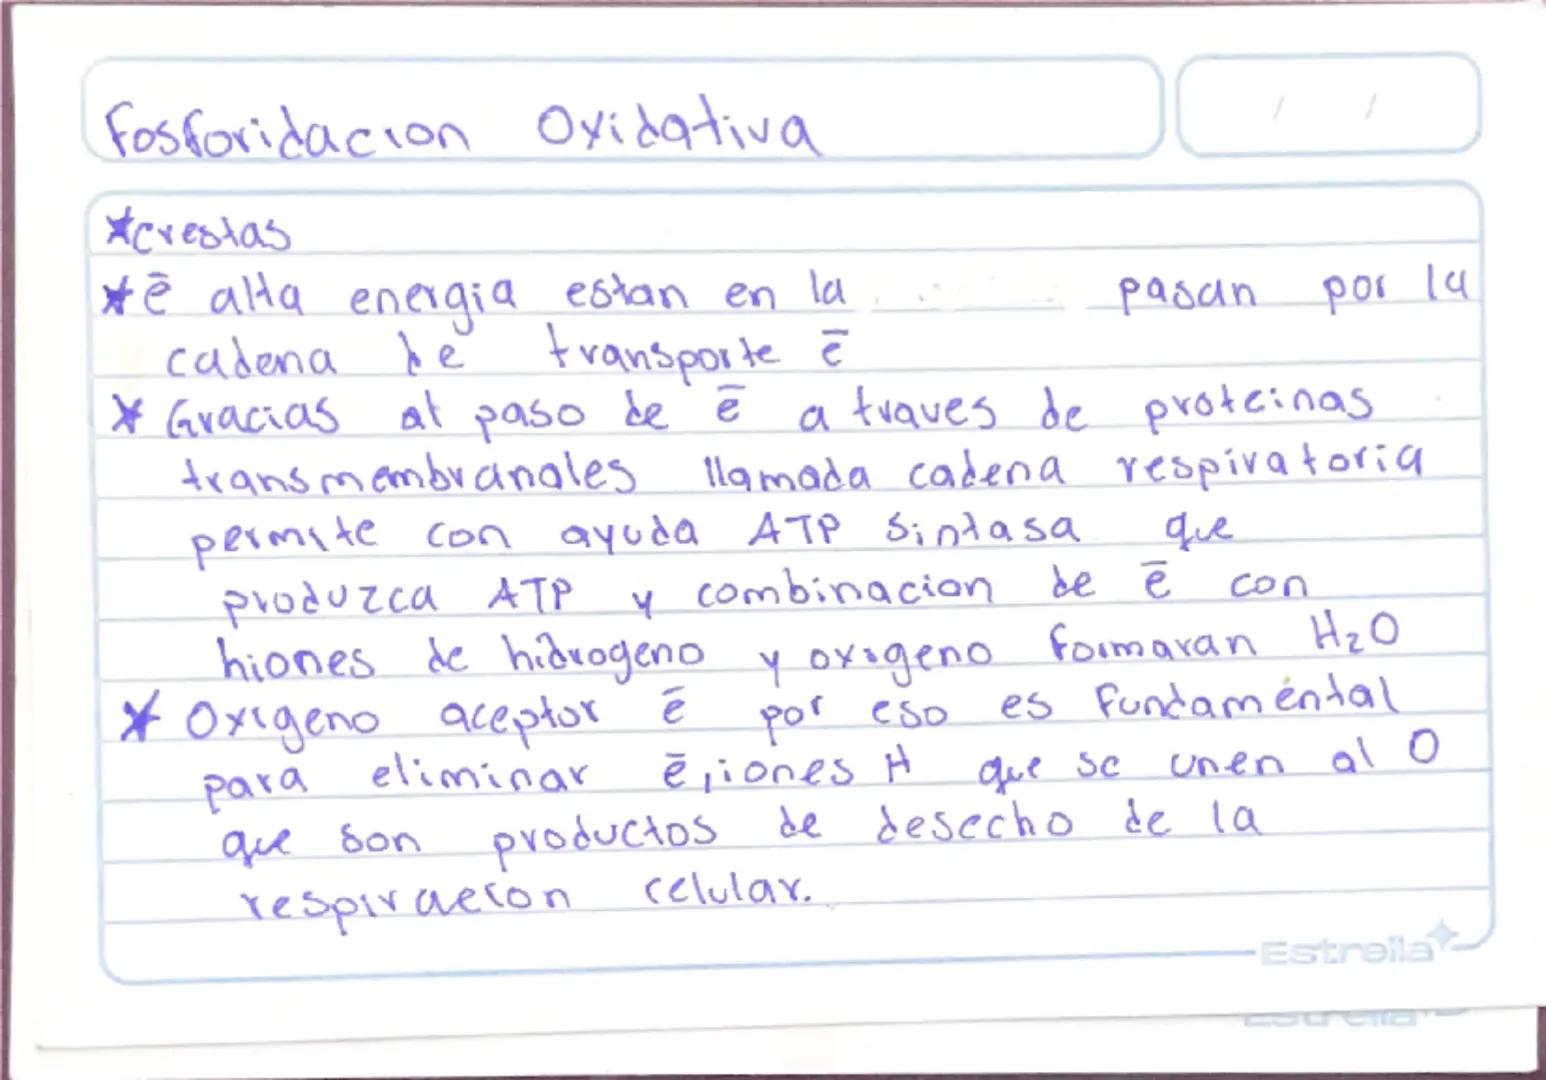 Fosforidacion Oxidativa
/ /
*crestas
*ē alta energia estan en la pasan por la
cadena de transporte ē
* Gracias al paso de ē a traves de proteinas
transmembranales llamada cadena respiratoria
permite con ayuda ATP Sintasa que
produzca ATP y combinacion de ē con
hiones de hidrogeno y oxigeno formaran H₂O
* Oxigeno aceptor ē por eso es fundaméntal
para eliminar ē, iones H que se unen al O
que son productos de desecho de la
respiracion celular.
Estrella